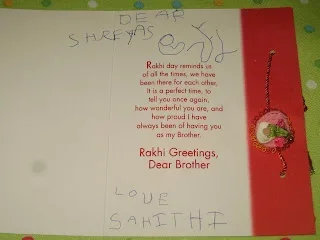 DEAR
SHREYAS
Rakhi day reminds us
of all the times, we have
been there for each other,
it is a perfect time, to
tell you once again,
how wonderful you are, and
how proud I have
always been of having you
as my Brother.
Rakhi Greetings,
Dear Brother
LOVE
SAHITHI